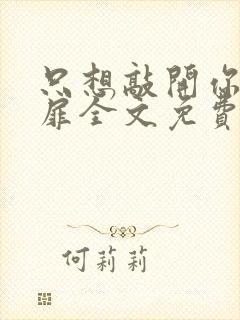 只想敲開你
扉全文免費
何莉莉